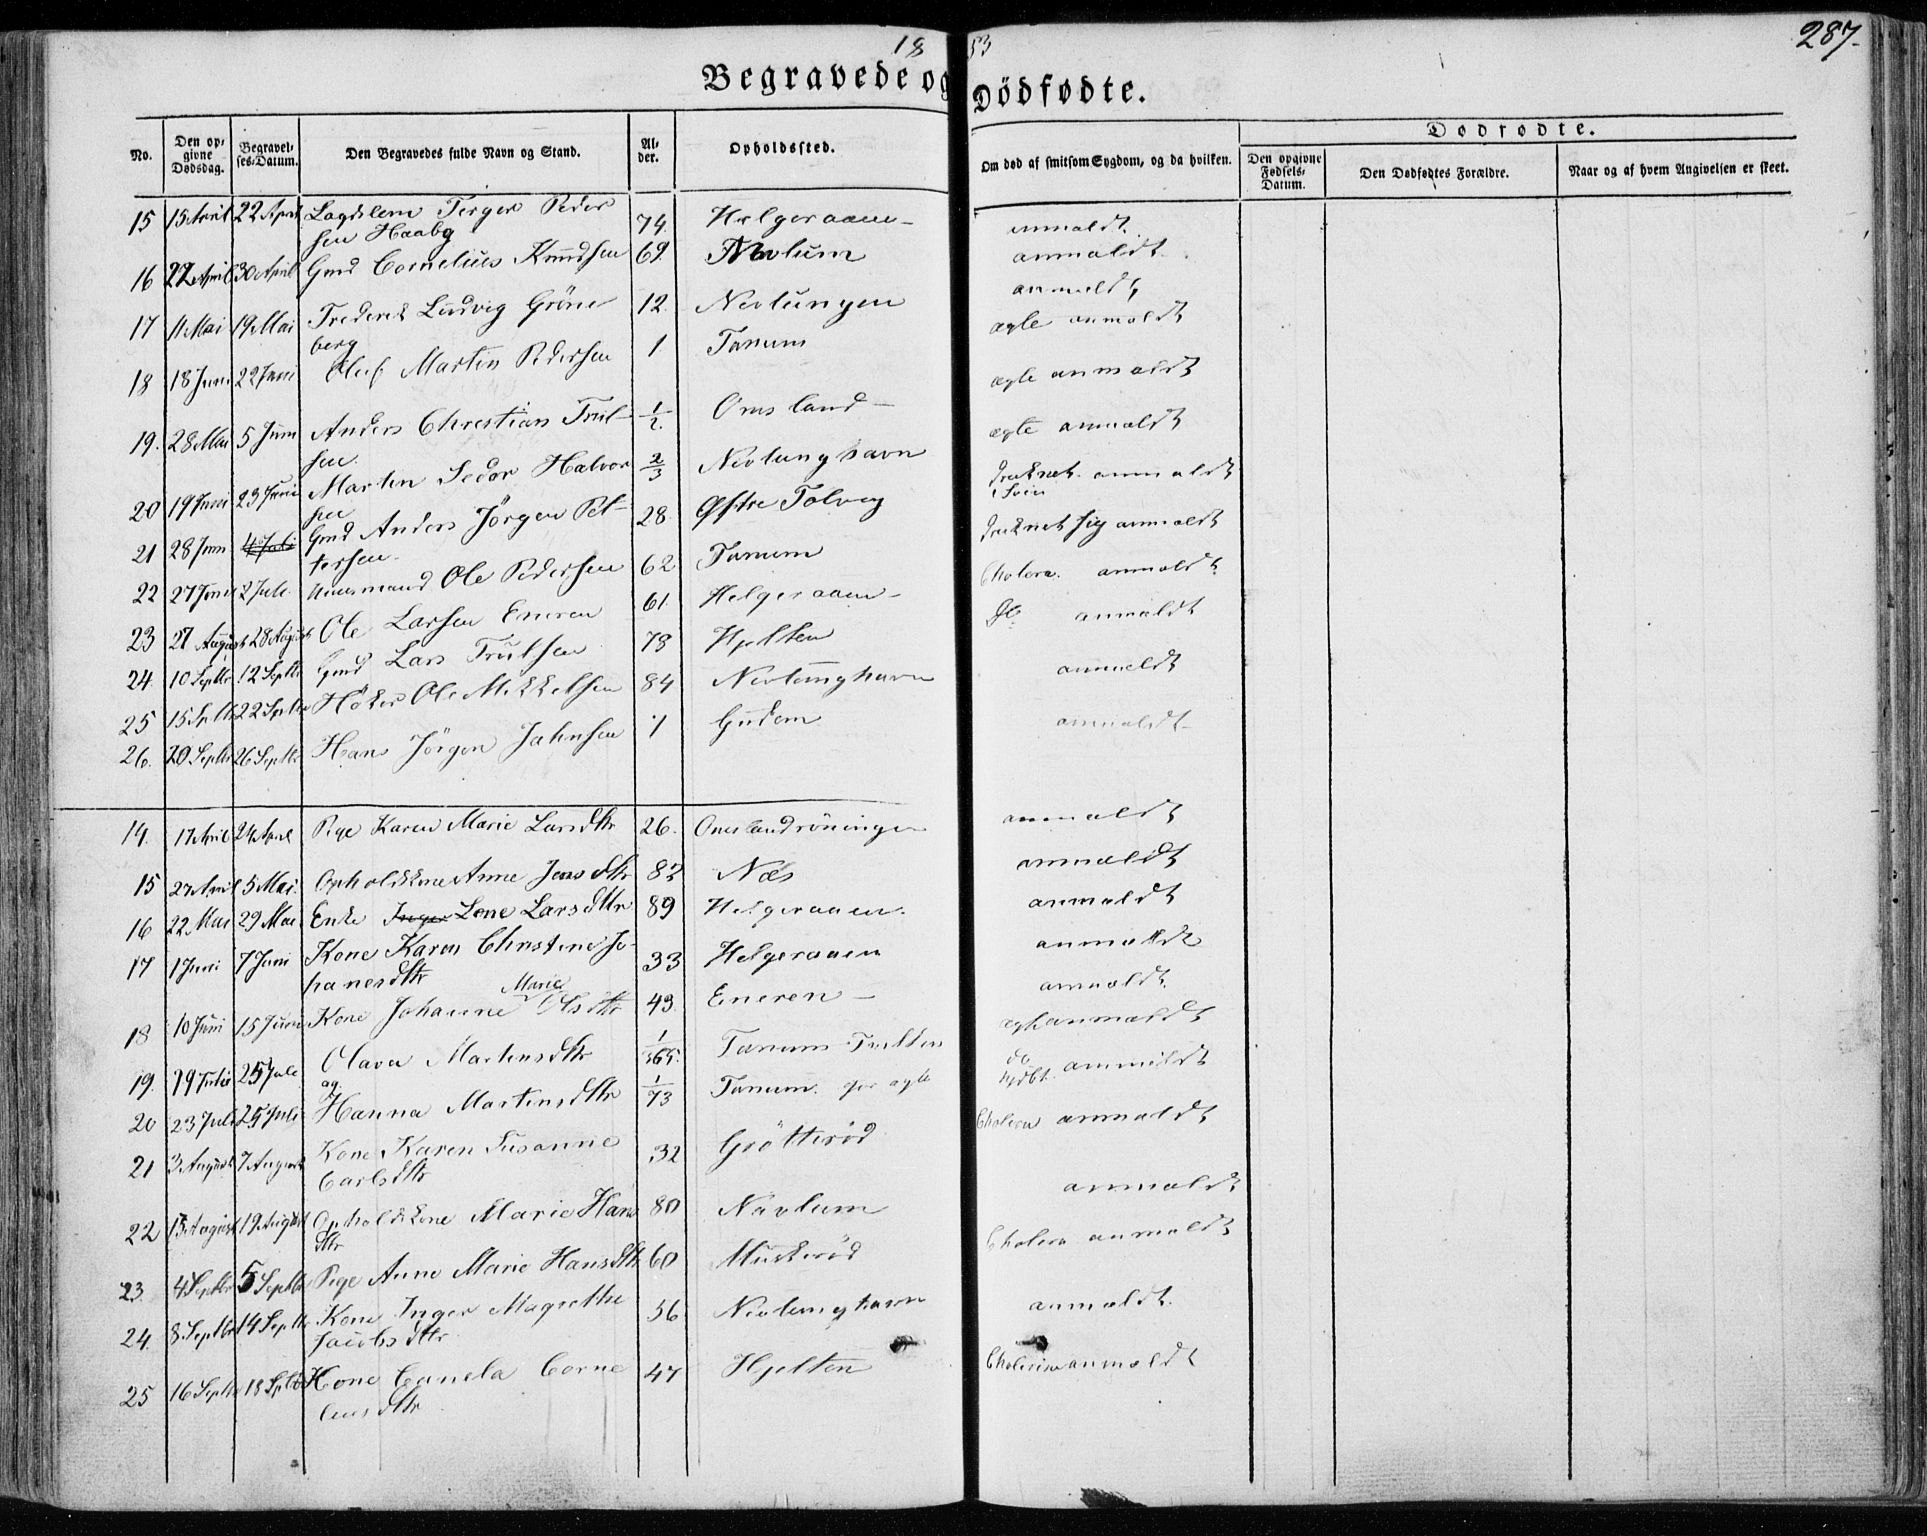 1853
287.
Begravede og Dödfødte.
No.
Den opgivne Dødsdag.
Begravelses-Datum.
Den Begravedes fulde Navn og Stand.
Alder.
Opholdssted.
Om død af smitsom Sygdom, og da hvilken.
Dødfødte.
Den opgivne Fødsels-Datum.
Den Dødfødtes Forældre.
Naar og af hvem Angivelsen er skeet.
15 15 April 22 April Lagdslem Terger Peder 74. Helgeraaen - anmeldt.
sen Haaby
16 22 April 30 April Gmd Cornelius Knudsen 69. Nevlum anmeldt.
17 11 Mai 19 Mai Frederik Ludvig Gröne 12. Nevlungen anmeldt
berg
18 18 Juni 22 Juni Oluf Martin Pedersen 1. Tanum ægte anmeldt
19. 28 Mai 5 Juni Anders Christian Trul- 1/2. Omsland - ægte anmeldt
sen.
20 19 Juni 23 Juni Martin Sedor Halvor 2/3 Nevlunghavn ægte anmeldt
sen
21 28 Juni 4 Juli Gmd Anders Jörgen Pet- 28. Østre Tolvrg druknet i Søen anmeldt
tersen.
22 27 Juni 2 Juli Huusmand Ole Pedersen 62 Tanum druknet sig anmeldt
23 27 August 28 August Ole Larsen Eneren 61. Helgeraaen - Cholera. anmeldt
24. 10 Septbr 12 Septbr Gmd Lars Trulsen 78 Hjelten Do anmeldt
25 15 Septbr 22 Septbr Höker Ole Mikkelsen 84 Nevlunghavn anmeldt
26. 20 Septbr 26 Septbr Hans Jörgen Jahnsen 1 Gudem anmeldt
14. 17 April 24 April Pige Karen Marie Larsdtr 26. Omslandröningen anmeldt
15 27 April 5 Mai. Opholdskone Anne Jensdtr 82 Næs anmeldt
16 22 Mai 29 Mai Enke Inger Lene Larsdttr 89 Helgeraaen. anmeldt
17 1 Juni 7 Juni Kone Karen Christine Jo- 33 Helgeraaen anmeldt
hanesdtr
18 10 Juni 15 Juni Kone Johanne Marie Olsdtr 43. Eneren - anmeldt.
19. 19 Juli 25 Juli Olava Martinsdtr 1/365. Tanum ægte anmeldt
og
20 23 Juli 25 Juli Hanna Martinsdtr 1/73 Tanum. do hjdbt. anmeldt
21 3 August 7 August Kone Karen Susanne 32 Grötteröd Cholera anmeldt
Carlsdtr
22 13 August 19 August Opholdskone Marie Hans 80 Nevlum anmeldt
dtr
23. 4 Septbr 5 Septbr Pige Anne Marie Hansdtr 60 Muskeröd Cholera anmeldt
24. 8 Septbr 14 Septbr Kone Inger Magrethe 56 Nevlunghavn anmeldt.
Jacobsdtr
25 16 Septbr 18 Septbr Kone Corne 47 Hjelten Cholerine anmeldt
liusdtr